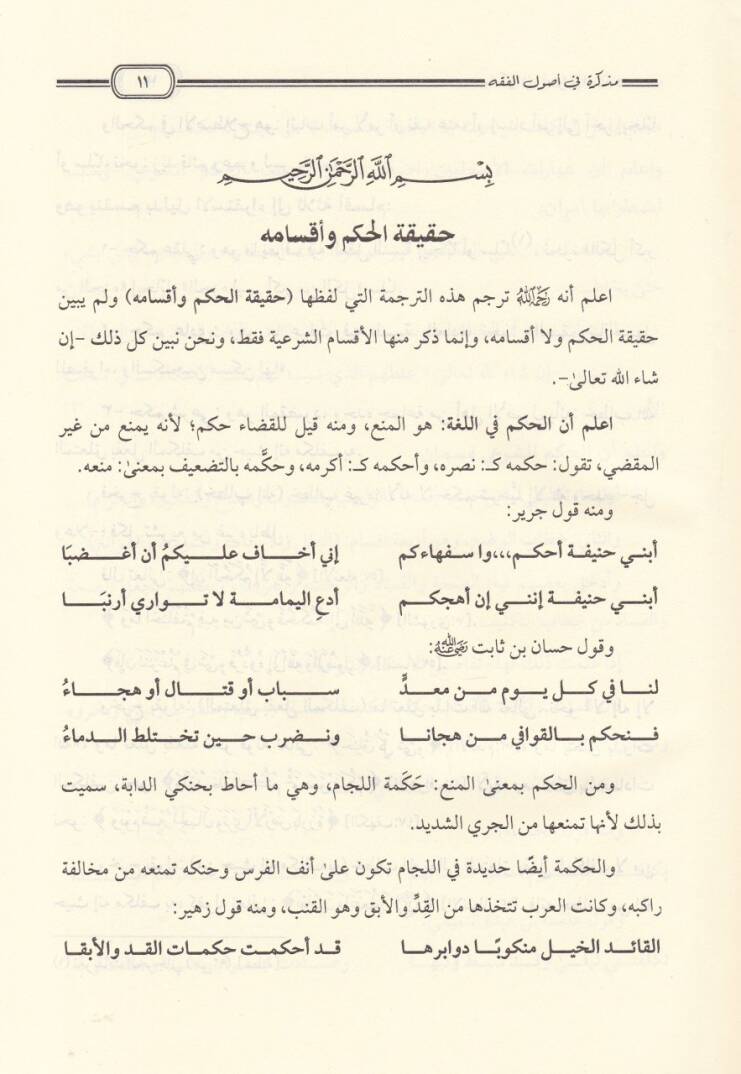 مذكرة في أصول الفقه ١١
بِسْمِ اللَّهِ الرَّحْمَٰنِ الرَّحِيمِ
حقيقة الحكم وأقسامه
اعلم أنه رَحِمَهُ اللَّهُ ترجم هذه الترجمة التي لفظها (حقيقة الحكم وأقسامه) ولم يبين
حقيقة الحكم ولا أقسامه، وإنما ذكر منها الأقسام الشرعية فقط، ونحن نبين كل ذلك -إن
شاء الله تعالىٰ-.
اعلم أن الحكم في اللغة: هو المنع، ومنه قيل للقضاء حكم؛ لأنه يمنع من غير
المقضي، تقول: حكمه كـ: نصره، وأحكمه كـ: أكرمه، وحكَّمه بالتضعيف بمعنىٰ: منعه.
ومنه قول جرير:
أبني حنيفة أحكم،،،وا سفهاءكم إني أخاف عليكمُ أن أغضبَا
أبني حنيفة إنني إن أهجكم أدعِ اليمامة لا تواري أرنبَا
وقول حسان بن ثابت رَضِيَ اللَّهُ عَنْهُ:
لنا في كل يوم من معدٍّ سباب أو قتال أو هجاءُ
فنحكم بالقوافي من هجانا ونضرب حين تختلط الدماءُ
ومن الحكم بمعنىٰ المنع: حَكَمة اللجام، وهي ما أحاط بحنكي الدابة، سميت
بذلك لأنها تمنعها من الجري الشديد.
والحكمة أيضًا حديدة في اللجام تكون علىٰ أنف الفرس وحنكه تمنعه من مخالفة
راكبه، وكانت العرب تتخذها من القِدِّ والأبق وهو القنب، ومنه قول زهير:
القائد الخيل منكوبًا دوابرها قد أحكمت حكمات القد والأبقا